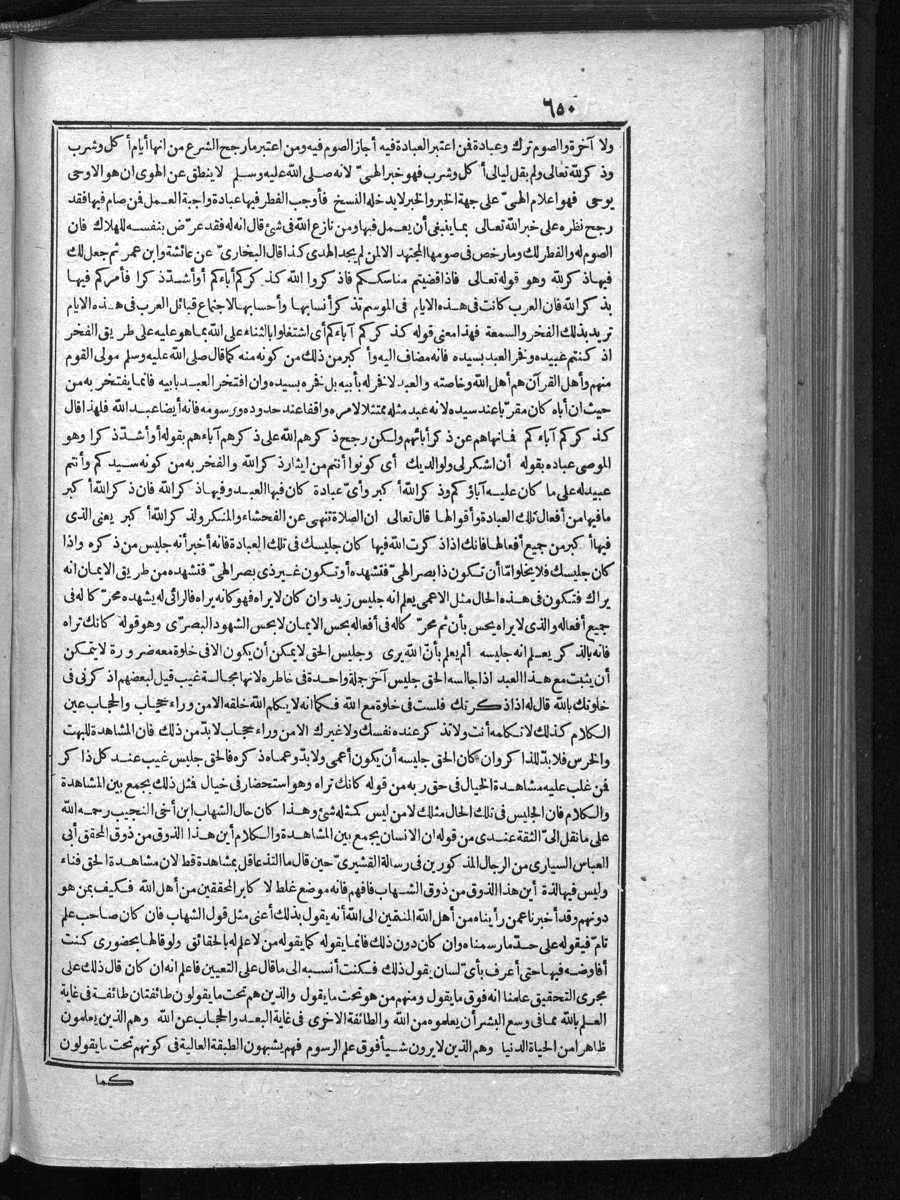 ٦٥٠
ولا آخرة والصوم ترك وعبادة فن اعتبر العبادة فيه أجاز الصوم فيه ومن اعتبر مارجح الشرع من انها أيام أكل وشرب
وذكر لله تعالى ولم يقل ليالى أكل وشرب فهو خبر الهىّ لانه صلى الله عليه وسلم لا ينطق عن الهوى ان هو الا وحى
يوحى فهو اعلام الهىّ على جهة الخبر والخبر لا يدخله النسخ فأوجب الفطر فيها عبادة واجبة العمل فن صام فيها فقد
رجح نظره على خبر الله تعالى بما ينبغى أن يعمل فيها ومن نازع الله فى شئ قال انه له فقد عرّض بنفسه للهلاك فان
الصوم له والفطر لك وما رخص فى صومها المجتهد الا لمن لم يجد الهدى كذا قال البخارىّ عن عائشة وابن عمر ثم جعل لك
فيها ذكر لله وهو قوله تعالى فاذا قضيتم مناسككم فاذكروا الله كذكركم آباءكم أو أشدّ ذكرا فأمركم فيها
بذكر الله فان العرب كانت فى هذه الايام فى الموسم تذكر أنسابها وأحسابها لاجتماع قبائل العرب فى هذه الايام
تريد بذلك الفخر والسمعة فهذا معنى قوله كذكركم آباءكم أى اشتغلوا بالثناء على الله بما هو عليه على طريق الفخر
اذ كنتم عبيده وفخر العبد بسيده فانه مضاف اليه وأكبر من ذلك من كونه منه كما قال صلى الله عليه وسلم مولى القوم
منهم وأهل القرآن هم أهل الله وخاصته والعبد لا فخر له بأبيه بل فخره بسيده وان افتخر العبد بابيه فانما يفتخر به من
حيث ان أباه كان مقرّبا عند سيده لانه عبد مثله ممتثلا لامره واقفا عند حدوده ورسومه فانه أيضا عبد الله فلهذا قال
كذكركم آباءكم فانهاهم عن ذكر أبائهم ولكن رجح ذكرهم الله على ذكرهم آباءهم بقوله أو أشدّ ذكرا وهو
الموصى عباده بقوله أن اشكر لى ولوالديك أى كونوا أنتم من ايثار ذكر الله والفخر به من كونه سيدكم وأنتم
عبيد له على ما كان عليه آباؤكم وذكر الله أكبر وأىّ عبادة كان فيها العبد وفيها ذكر الله فان ذكر الله أكبر
ما فيها من أفعال تلك العبادة وأقوالها قال تعالى ان الصلاة تنهى عن الفحشاء والمنكر ولذكر الله أكبر يعنى الذى
فيها أكبر من جميع أفعالها فانك اذا ذكرت الله فيها كان جليسك فى تلك العبادة فانه أخبر أنه جليس من ذكره واذا
كان جليسك فلا يخلو امّا أن تكون ذا بصر الهىّ فتشهده أو تكون غير ذى بصر الهىّ فتشهده من طريق الايمان انه
يراك فتكون فى هذه الحال مثل الاعمى يعلم انه جليس زيد وان كان لا يراه فهو كانه يراه فالرائى له يشهده محرّكا له فى
جميع أفعاله والذى لا يراه يحس بأن ثم محرّكا له فى أفعاله بحس الايمان لا بحس الشهود البصرىّ وهو قوله كانك تراه
فانه بالذكر يعلم انه جليسه ألم يعلم بأنّ الله يرى وجليس الحق لا يمكن أن يكون الا فى خلوة معه ضرورة لا يتمكن
أن يثبت مع هذا العبد اذا جالسه الحق جليس آخر جملة واحدة فى خاطره لانها مجالسة غيب قيل لبعضهم اذكرنى فى
خلوتك بالله قال له اذا ذكرتك فلست فى خلوة مع الله فكما انه لا يكلم الله خلقه الا من وراء حجاب والحجاب عين
الكلام كذلك لا تكلمه أنت ولا تذكر عنده نفسك ولا غيرك الا من وراء حجاب لا بدّ من ذلك فان المشاهدة للبهت
والخرس فلا بدّ للذاكر وان كان الحق جليسه أن يكون أعمى ولا بدّ وعماه ذكره فالحق جليس غيب عند كل ذاكر
فمن غلب عليه مشاهدة الخيال فى حق ربه من قوله كانك تراه وهو استحضار فى خيال فمثل ذلك يجمع بين المشاهدة
والكلام فان الجليس فى تلك الحال مثلك لا من ليس كمثله شئ وهذا كان حال الشهاب ابن أخى النجيب رحمه الله
على ما نقل الىّ الثقة عندى من قوله ان الانسان يجمع بين المشاهدة والكلام أين هذا الذوق من ذوق المحقق أبى
العباس السيارى من الرجال المذكورين فى رسالة القشيرىّ حين قال ما التذ عاقل بمشاهدة قط لان مشاهدة الحق فناء
وليس فيها لذة أين هذا الذوق من ذوق الشهاب فافهم فانه موضع غلط لاكابر المحققين من أهل الله فكيف بمن هو
دونهم وقد أخبرنا عمن رأيناه من أهل الله المنتمين الى الله أنه يقول بذلك أعنى مثل قول الشهاب فان كان صاحب علم
تامّ فيقوله على حدّ ما رسمناه وان كان دون ذلك فانما يقوله كما يقوله من لا علم له بالحقائق ولو قالها بحضورى كنت
أفاوضه فيها حتى أعرف بأىّ لسان يقول ذلك فكنت أنسبه الى ما قال على التعيين فاعلم انه ان كان قال ذلك على
مجرى التحقيق علمنا انه فوق ما يقول ومنهم من هو تحت ما يقول والذين هم تحت ما يقولون طائفتان طائفة فى غاية
العلم بالله مما فى وسع البشر أن يعلموه من الله والطائفة الاخرى فى غاية البعد والحجاب عن الله وهم الذين يعلمون
ظاهرا من الحياة الدنيا وهم الذين لا يرون شيأ فوق علم الرسوم فهم يشبهون الطبقة العالية فى كونهم تحت ما يقولون
كما